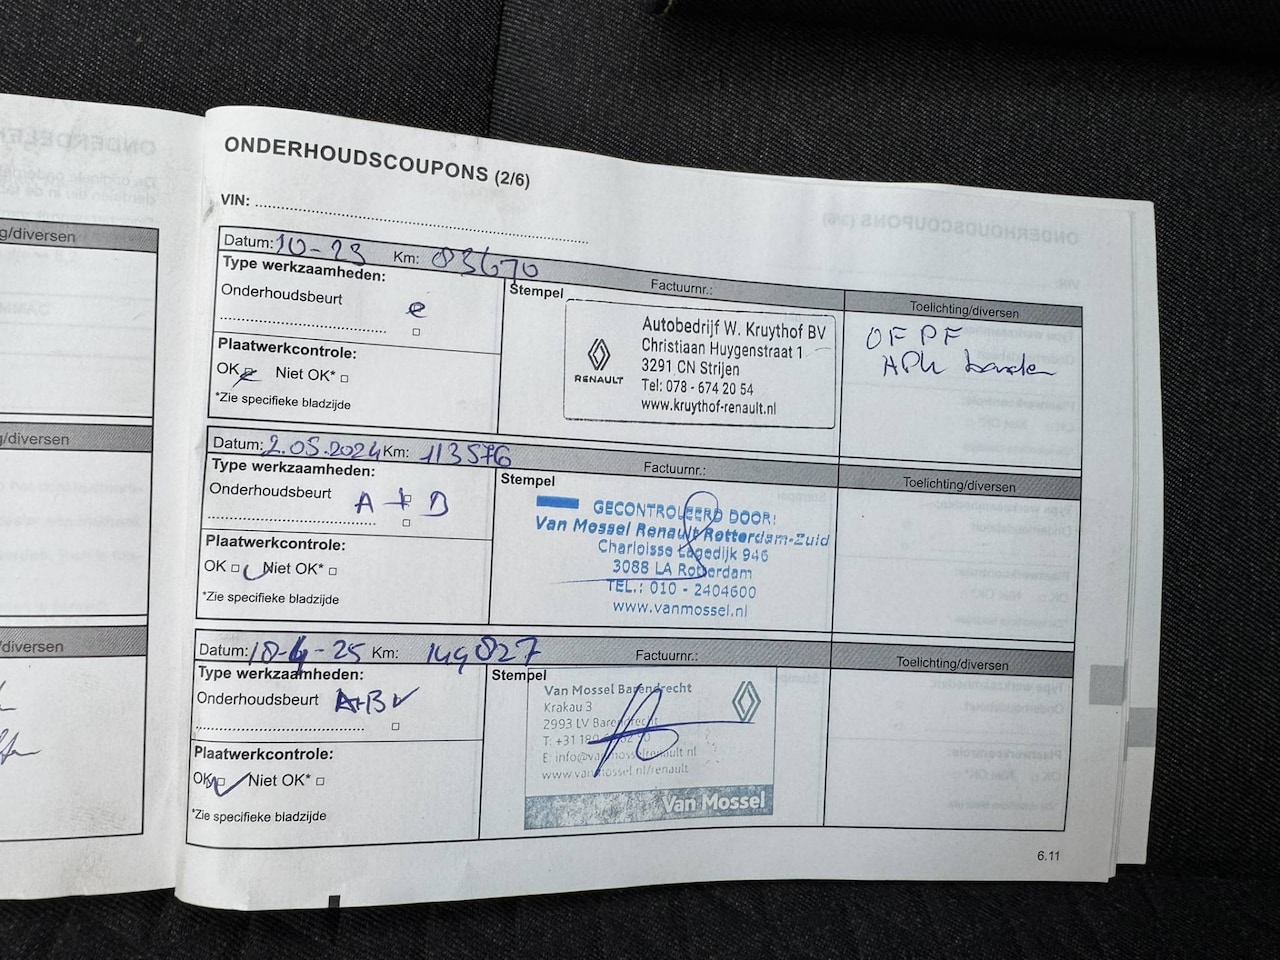 g/diversen
g/diversen
/diversen
ONDERHOUDSCOUPONS (2/6)
VIN:
Datum: 10-23 Km: 83670 Factuurnr.: Toelichting/diversen
Type werkzaamheden:
Onderhoudsbeurt
Plaatwerkcontrole:
OK Niet OK*
*Zie specifieke bladzijde
Stempel
RENAULT
Autobedrijf W. Kruythof BV
Christiaan Huygenstraat 1
3291 CN Strijen
Tel: 078 - 674 20 54
www.kruythof-renault.nl
OF PF
APK banden
Datum: 2.05.2024 Km: 113576 Factuurnr.: Toelichting/diversen
Type werkzaamheden:
Onderhoudsbeurt A + B
Plaatwerkcontrole:
OK Niet OK*
*Zie specifieke bladzijde
Stempel
GECONTROLEERD DOOR:
Van Mossel Renault Rotterdam-Zuid
Charloisse Lagedijk 946
3088 LA Rotterdam
TEL.: 010 - 2404600
www.vanmossel.nl
Datum: 18-4-25 Km: 149827 Factuurnr.: Toelichting/diversen
Type werkzaamheden:
Onderhoudsbeurt A+B
Plaatwerkcontrole:
OK Niet OK*
*Zie specifieke bladzijde
Stempel
Van Mossel Barendrecht
Krakau 3
2993 LV Barendrecht
T: +31 180
E: info@vanmosselrenault.nl
www.vanmossel.nl/renault
Van Mossel
6.11